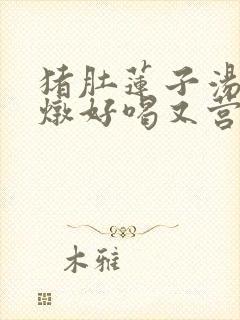 猪肚莲子汤
燉好喝又营
木雅